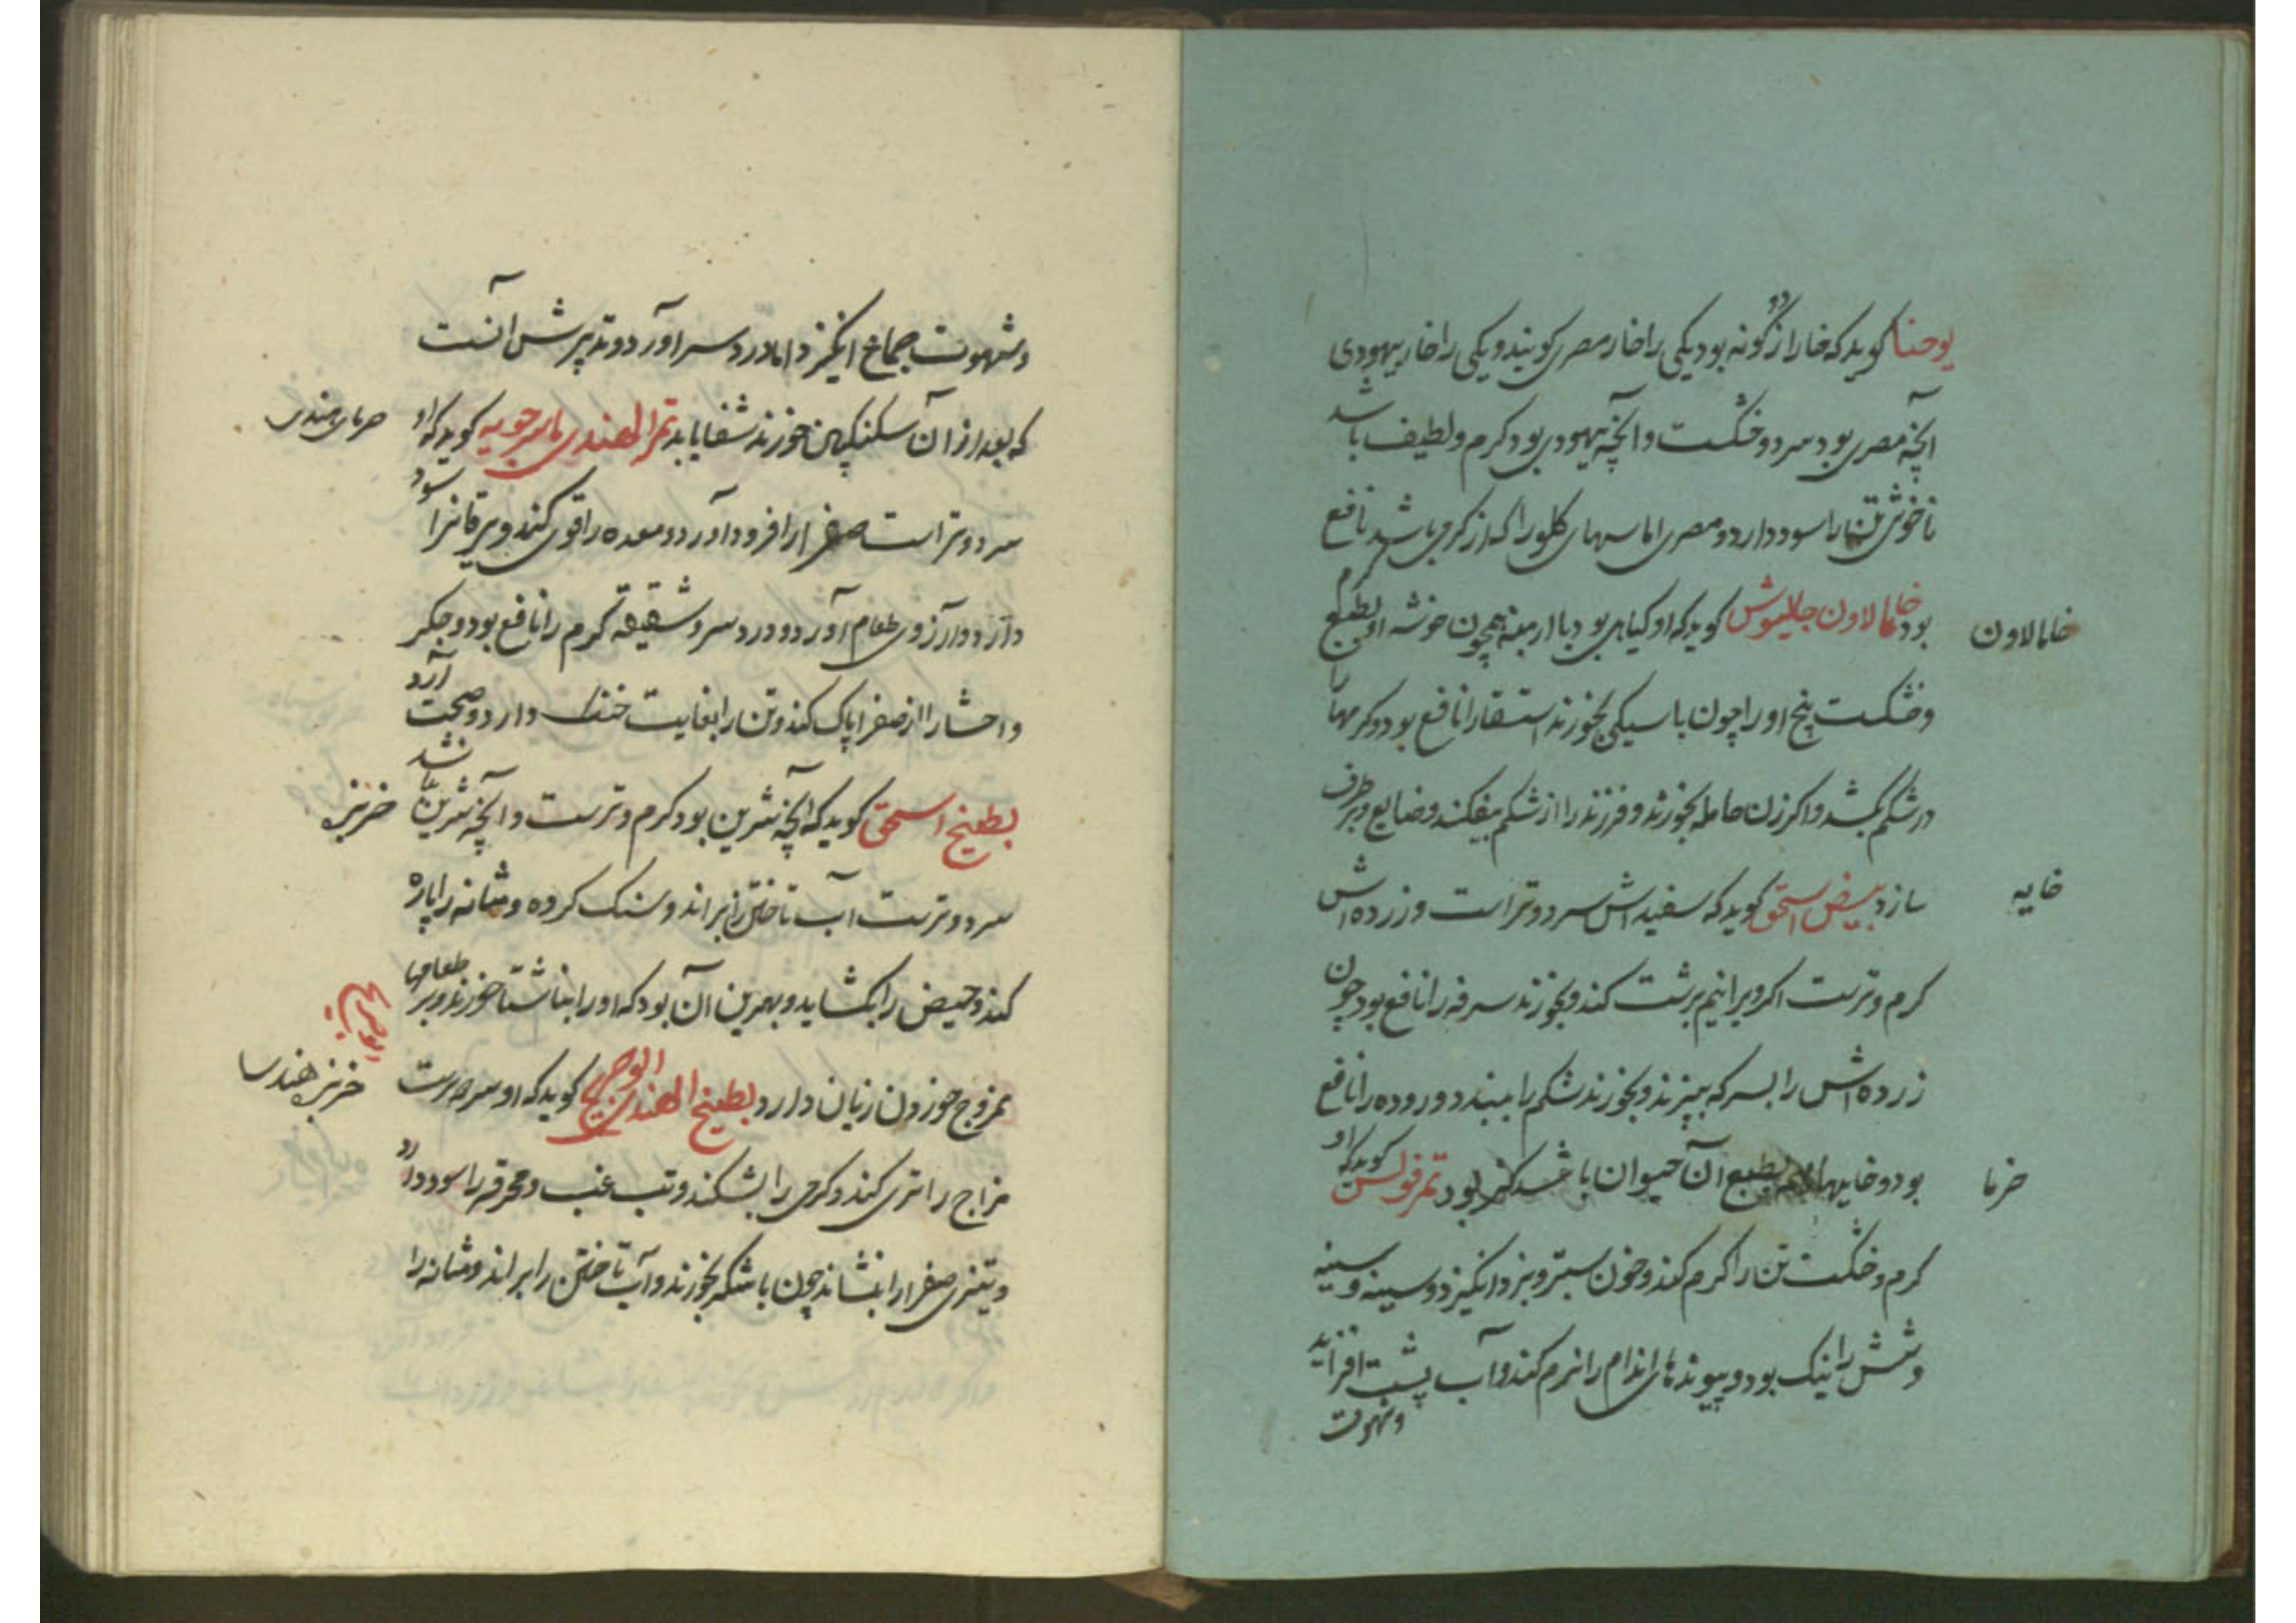 یوحنا کوید که خار از دو کونه بود یکی را خار مصری کویند و یکی را خار یهودی
آنچه مصری بود سرد و خشکست و آنچه یهودی بود کرم و لطیف باشد
ناخوش را سود دارد و مصری اماسهای کلو را که از کرمی باشد نافع
خامالاون
بود خامالاون جالینوس کوید که او کیاهی بود همچون خوشه او بطبع کرم
و خشکست بیخ او را چون با سیکی بخورند استسقا را نافع بود و کرمها را
در شکم بکشد و اکر زن حامله بخورد و فرزند را از شکم بیفکند و ضایع و برطرف
خایه
سازد بیض اسحق کوید که سفیداش سرد و تر است و زرده‌اش
کرم و ترست اکر ویرا نیم برشت کند و بخورند سرفه را نافع بود چون
زرده‌اش را بسرکه بپزند و بخورند شکم را ببندد و روده را نافع
خرما
بود و خایهای بطبع آن حیوان باشد بود تمر فولس کوید که او
کرم و خشکست تن را کرم کند و خون ستبر و بز دانکیزد و سینه
و شش را نیک بود و پیوندهای اندام را نرم کند و آب پشت افزاید
و شهوت
و شهوت جماع انکیزد اما درد سر آورد و تدبیرش آنست
خرمای هندی
که بعد از آن سکنکبین خورند شفا یابد تمر الهندی ماسرجویه کوید که او
سرد و تر است صفرا را فرود آورد و معده را قوی کند و یرقانرا سود
دارد و آرزوی طعام آورد و درد سر و شقیقه کرم را نافع بود و جکر
و احشا را از صفرا پاک کند و تن را بغایت خنک دارد و صحت آرد
خربز
بطیخ اسحق کوید که آنچه شرین بود کرم و ترست و آنچه شرین نباشد
سرد و ترست آب تاختن را براند و سنک کرده و مثانه را پاره
کند و حیض را بکشاید و بهترین آن بود که او را بناشتا خورند و بر طعامها
خربز هندسا
ممزوج خوردن زیان دارد بطیخ الهندی ابوجریج کوید که او سرد و ترست
مزاج را تری کند و کرمی را بشکند و تب غب و محرقه را سود دارد
و تیزی صفرا را بنشاند چون با شکر بخورند و آب تاختن را براند و مثانه را